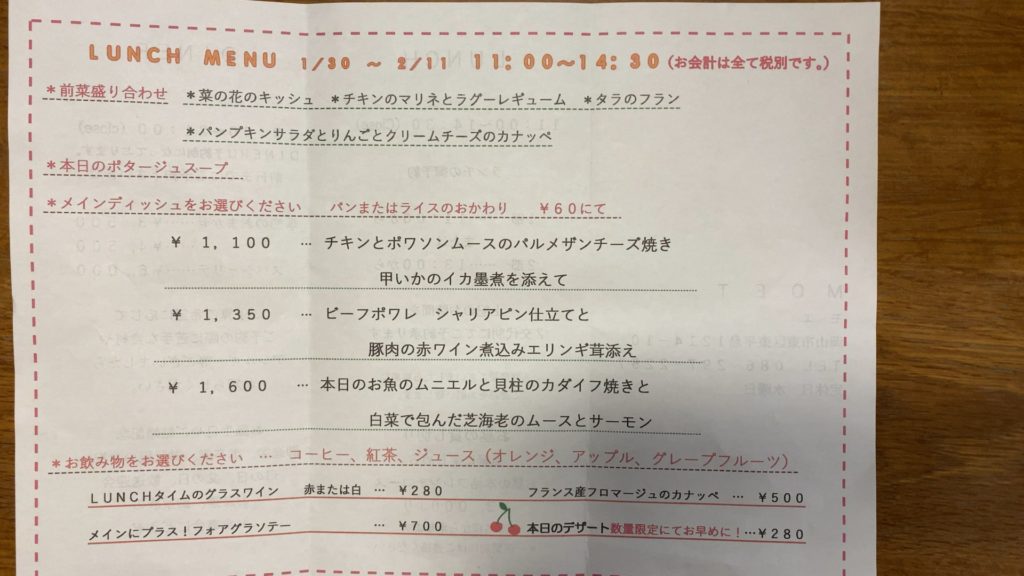 LUNCH MENU 1/30 ~ 2/11 11:00~14:30(お会計は全て税別です。)
*前菜盛り合わせ *菜の花のキッシュ *チキンのマリネとラグーレギューム *タラのフラン
*パンプキンサラダとりんごとクリームチーズのカナッペ
*本日のポタージュスープ
*メインディッシュをお選びください パンまたはライスのおかわり ¥60にて
¥ 1,100 … チキンとポワソンムースのパルメザンチーズ焼き
甲いかのイカ墨煮を添えて
¥ 1,350 … ビーフポワレ シャリアピン仕立てと
豚肉の赤ワイン煮込みエリンギ茸添え
¥ 1,600 … 本日のお魚のムニエルと貝柱のカダイフ焼きと
白菜で包んだ芝海老のムースとサーモン
*お飲み物をお選びください … コーヒー、紅茶、ジュース(オレンジ、アップル、グレープフルーツ)
LUNCHタイムのグラスワイン 赤または白 … ¥280 フランス産フロマージュのカナッペ … ¥500
メインにプラス!フォアグラソテー … ¥700 本日のデザート数量限定にてお早めに!…¥280